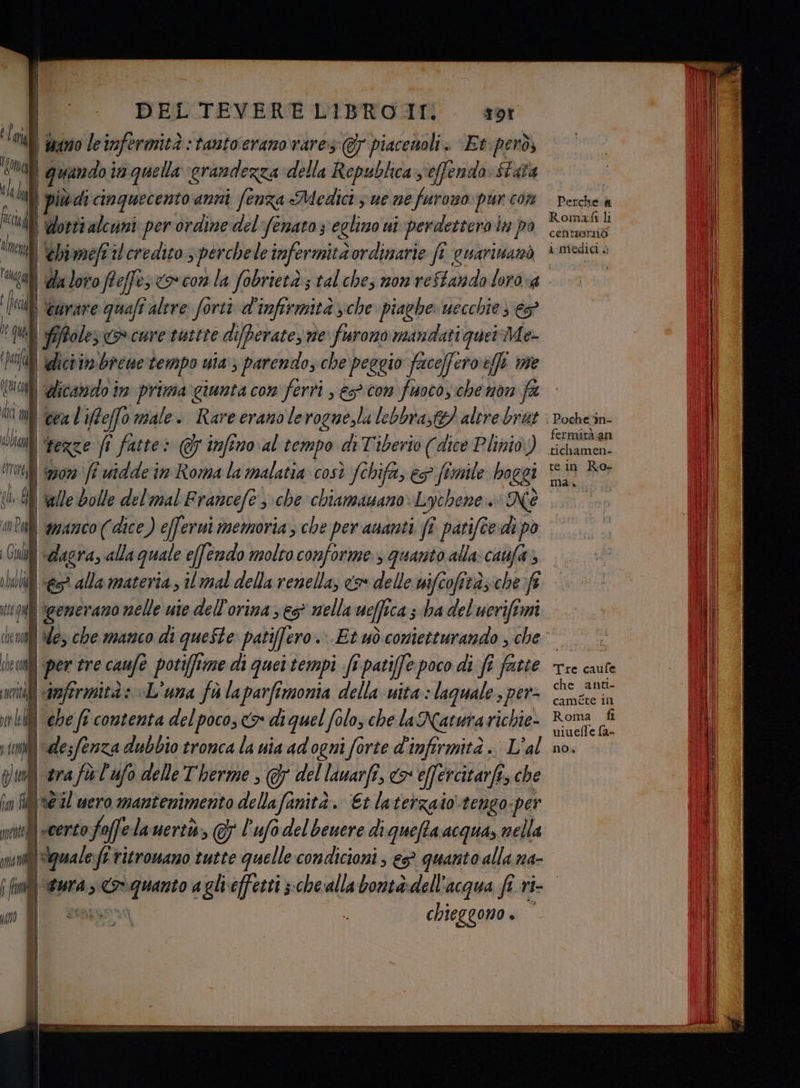 DEL TEVERE LIBRO II. 191
uano le infermità : tanto erano rare, & piaceuoli. Et però,
quando in quella grandezza della Republica, essendo stata
più di cinquecento anni senza Medici, ue ne furono pur con
dotti alcuni per ordine del senato; eglino ui perdettero in po
chi mesi il credito; perche le infermità ordinarie si guariuanò
da loro stesse, & con la sobrietà; tal che, non restando loro a
curare quasi altre sorti d'infirmità, che piaghe uecchie, &
fistole, & cure tuttte disperate, ne furono mandati quei Me-
dici in breue tempo uia; parendo, che peggio facessero essi me
dicando in prima giunta con ferri, & con fuoco, che non fa
cea l'istesso male. Rare erano le rogne, la lebbra, & altre brut
tezze si fatte: & infino al tempo di Tiberio (dice Plinio)
non si uidde in Roma la malatia così schifa, & simile hoggi
alle bolle del mal Francese, che chiamauano Lychene. Nè
manco (dice) esserui memoria, che per auanti si patisce di po
dagra, alla quale essendo molto conforme, quanto alla causa,
& alla materia, il mal della renella, & delle uiscosità, che si
generano nelle uie dell'orina, & nella uessica; ha del uerisimi
le, che manco di queste patissero. Et uò conietturando, che
per tre cause potissime di quei tempi si patisse poco di sì fatte
infirmità: L'una fù la parsimonia della uita: la quale, per-
che si contenta del poco, & di quel solo, che la Natura richie-
de; senza dubbio tronca la uia ad ogni sorte d'infirmità. L'al
tra fù l'uso delle Therme, & del lauarsi, & essercitarsi, che
è il uero mantenimento della sanità. Et la terza io tengo per
certo fosse la uertù, & l'uso del beuere di questa acqua, nella
quale si ritrouano tutte quelle condicioni, & quanto alla na-
tura, & quanto a gli effetti; che alla bontà dell'acqua si ri-
chieggono.
Perche a
Roma si li
centiornò
i medici.
Poche in-
fermità an
tichamen-
te in Ro-
ma.
Tre cause
che anti-
camẽte in
Roma si
uiuesse sa-
no.